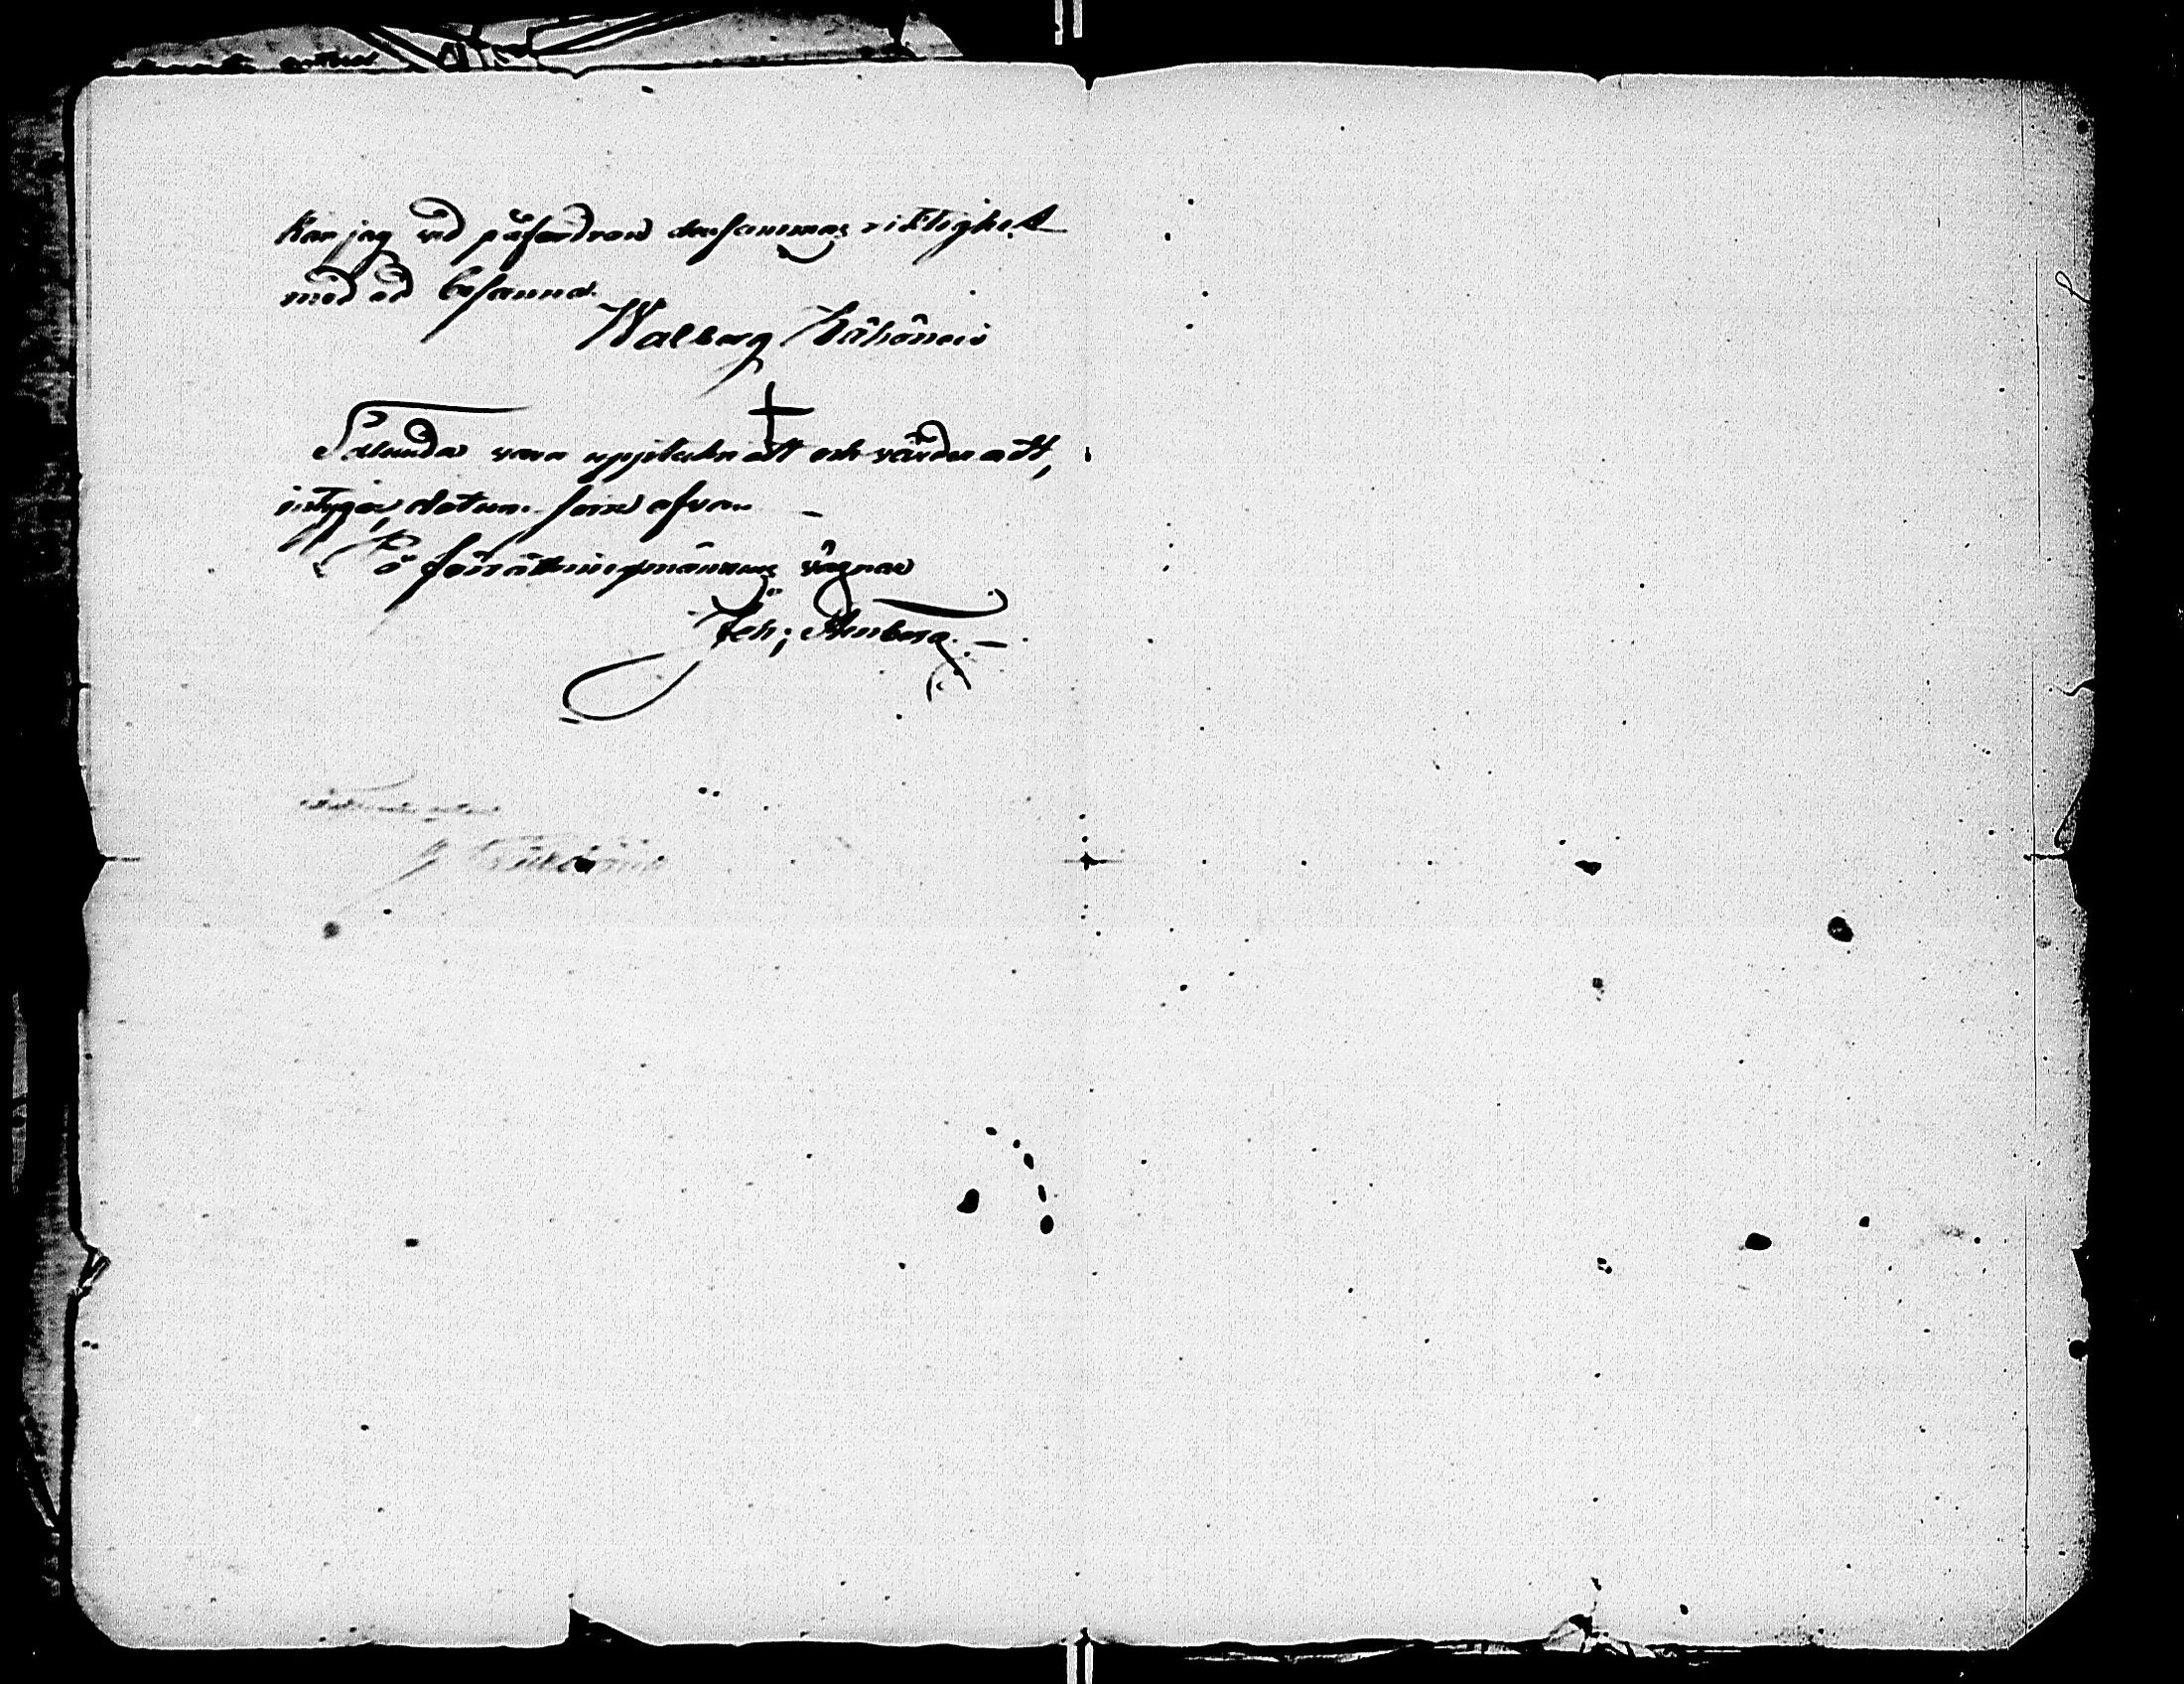 kan jag vid påfordran densammas riktighet
med ed besanna.
Walborg Kähönen
Sålunda vara uppteknatt och värderatt,
intyga datum som ofvan
På förrättningsmännens vägnar
Joh: Stenberg.